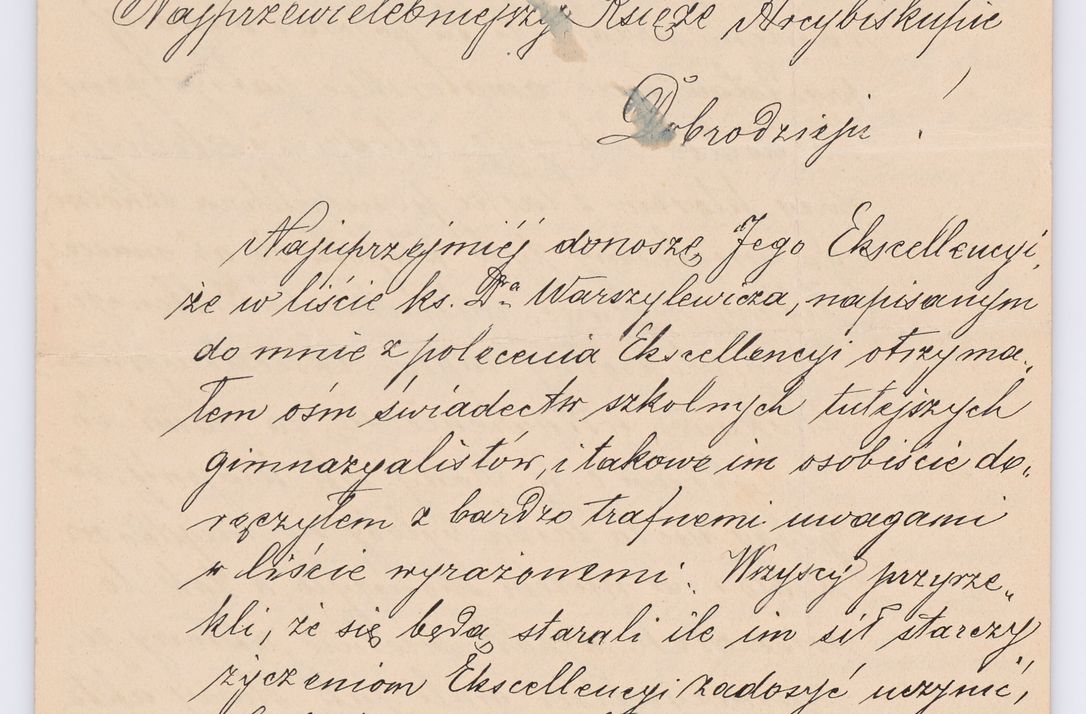 Najprzewielebniejszy Księże Arcybiskupie
Dobrodzieju !
Najuprzejmiéj donoszę Jego Ekscellencyi,
że w liście ks. Dra Warszylewicza, napisanym
do mnie z polecenia Ekscellencyi otrzyma„
łem ośm świadectw szkolnych tutejszych
gimnazyalistów, i takowe im osobiście do„
ręczyłem z bardzo trafnemi uwagami
w liście wyrażonemi. Wszyscy przyrze„
kli, że się będą starali ile im sił starczy
życzeniom Ekscellencyi zadosyć uczynić,